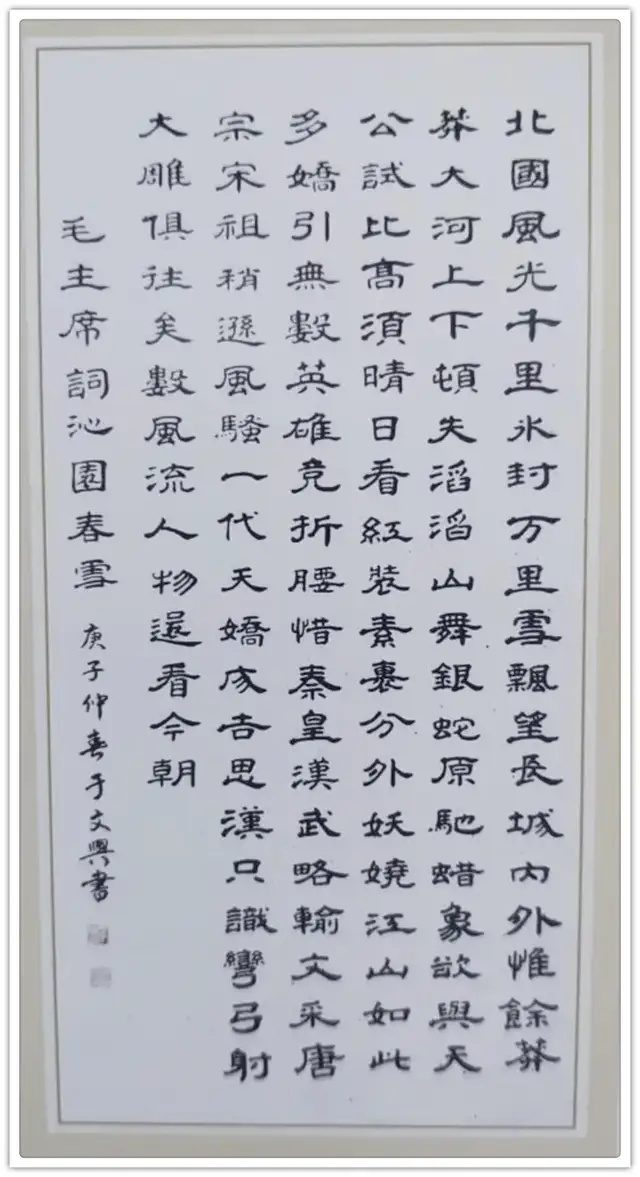 北國風光千里氷封万里雪飄望長城内外惟餘莽
莽大河上下頓失滔滔山舞銀蛇原馳蜡象欲與天
公試比髙須晴日看紅裝素裹分外妖嬈江山如此
多嬌引無數英雄竞折腰惜秦皇漢武略輸文采唐
宗宋祖稍遜風騷一代天嬌成吉思漢只識彎弓射
大雕俱往矣數風流人物還看今朝
毛主席詞沁園春雪 庚子仲春于文興書